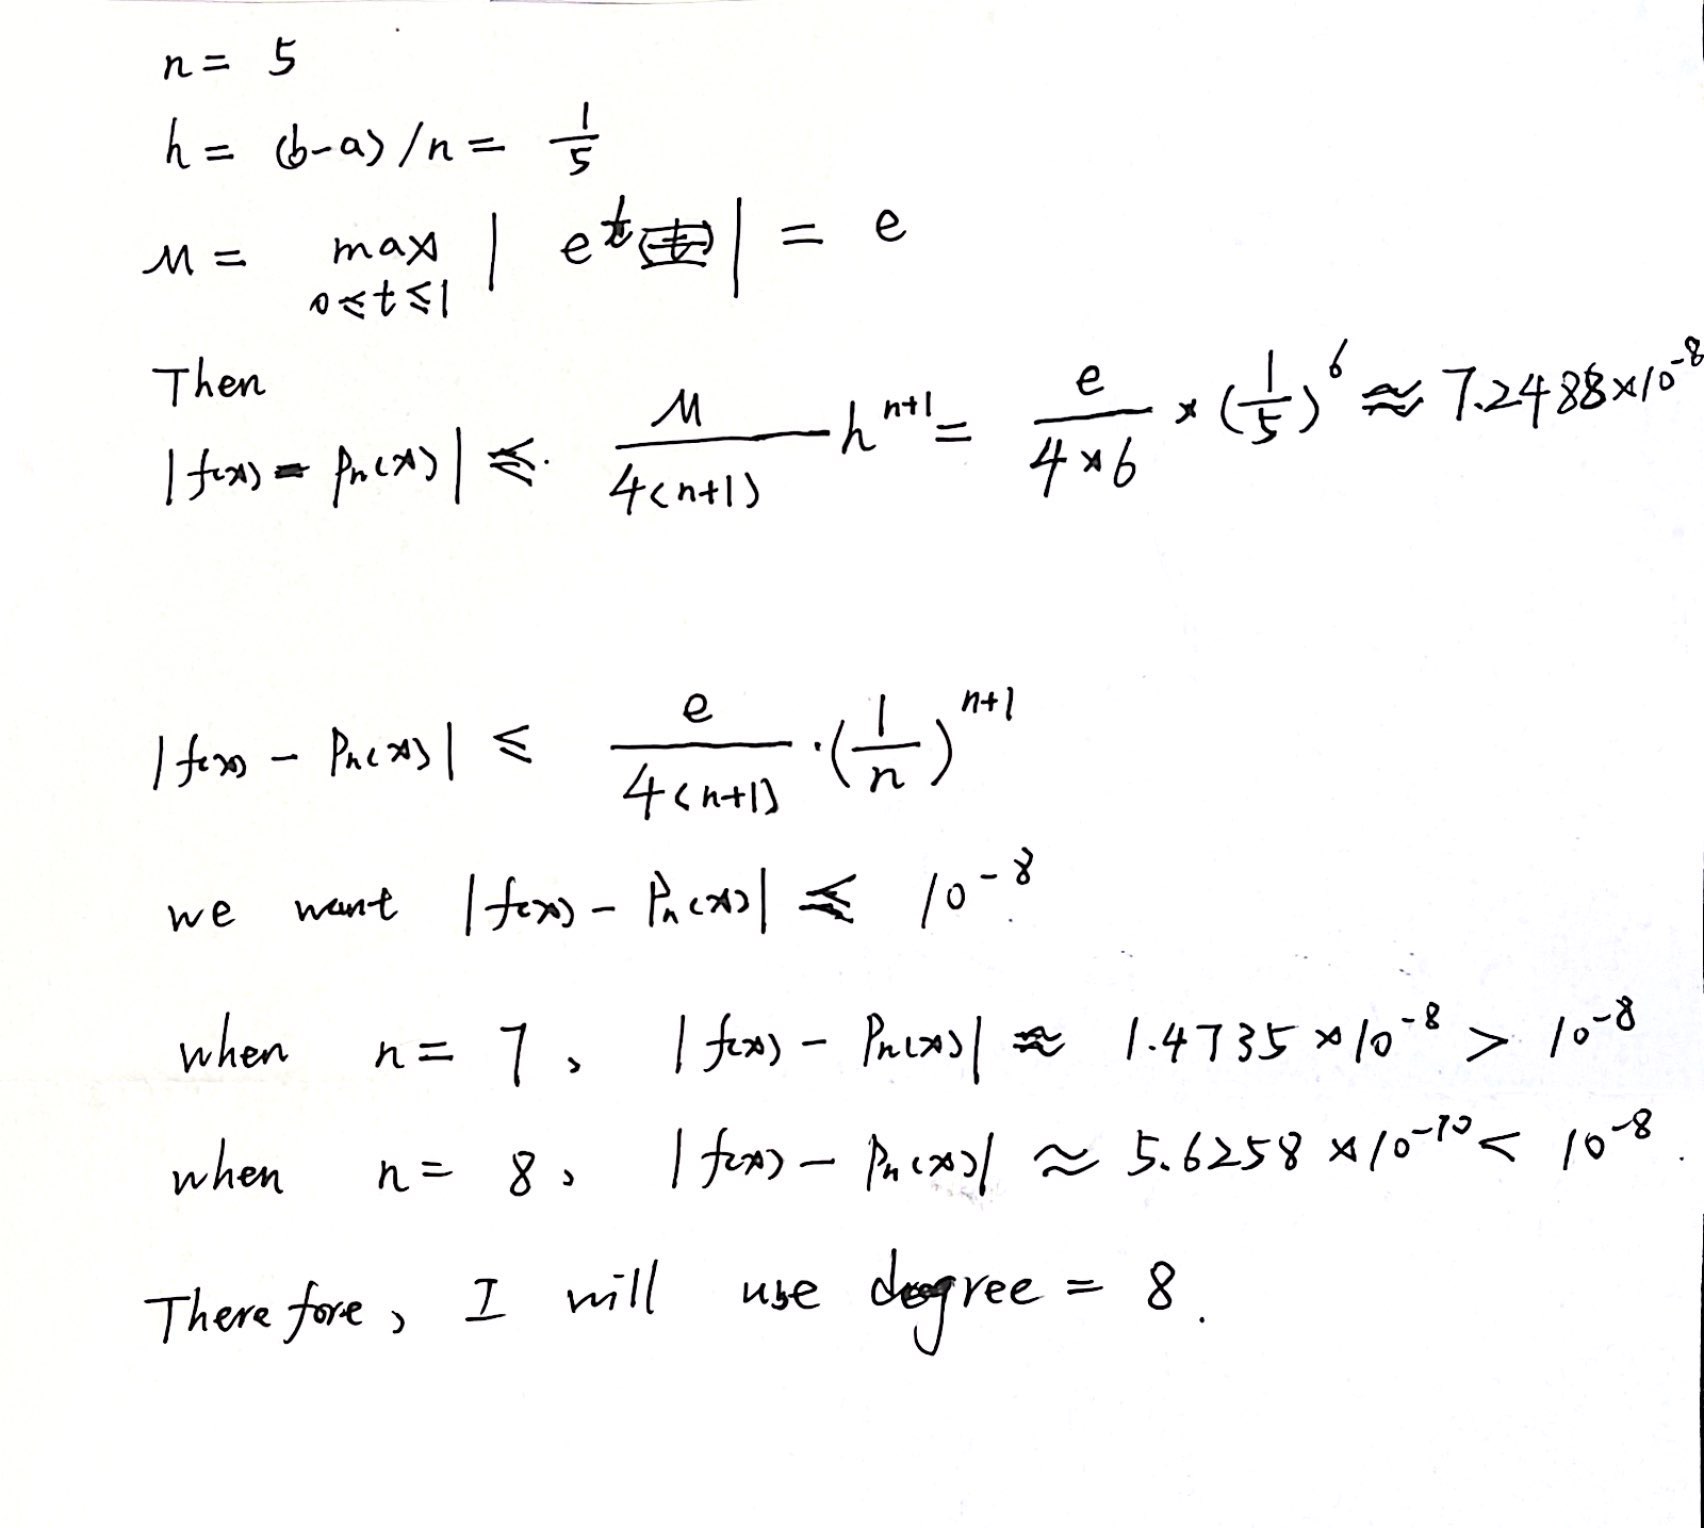 n = 5
h = (b-a)/n = 1/5
M = max 0≤t≤1 | e^t | = e
Then
|f(x) - Pn(x)| ≤ M/4(n+1) h^n+1 = e/4×6 × (1/5)^6 ≈ 7.2488×10^-8
|f(x) - Pn(x)| ≤ e/4(n+1) · (1/n)^n+1
we want |f(x) - Pn(x)| ≤ 10^-8
when n = 7, |f(x) - Pn(x)| ≈ 1.4735 ×10^-8 > 10^-8
when n = 8, |f(x) - Pn(x)| ≈ 5.6258 ×10^-10 < 10^-8.
Therefore, I will use degree = 8.